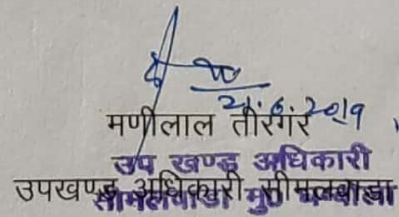 21.6.2019
मणीलाल तीरगर
उप खण्ड अधिकारी
उपखण्ड अधिकारी सीमलवाडा